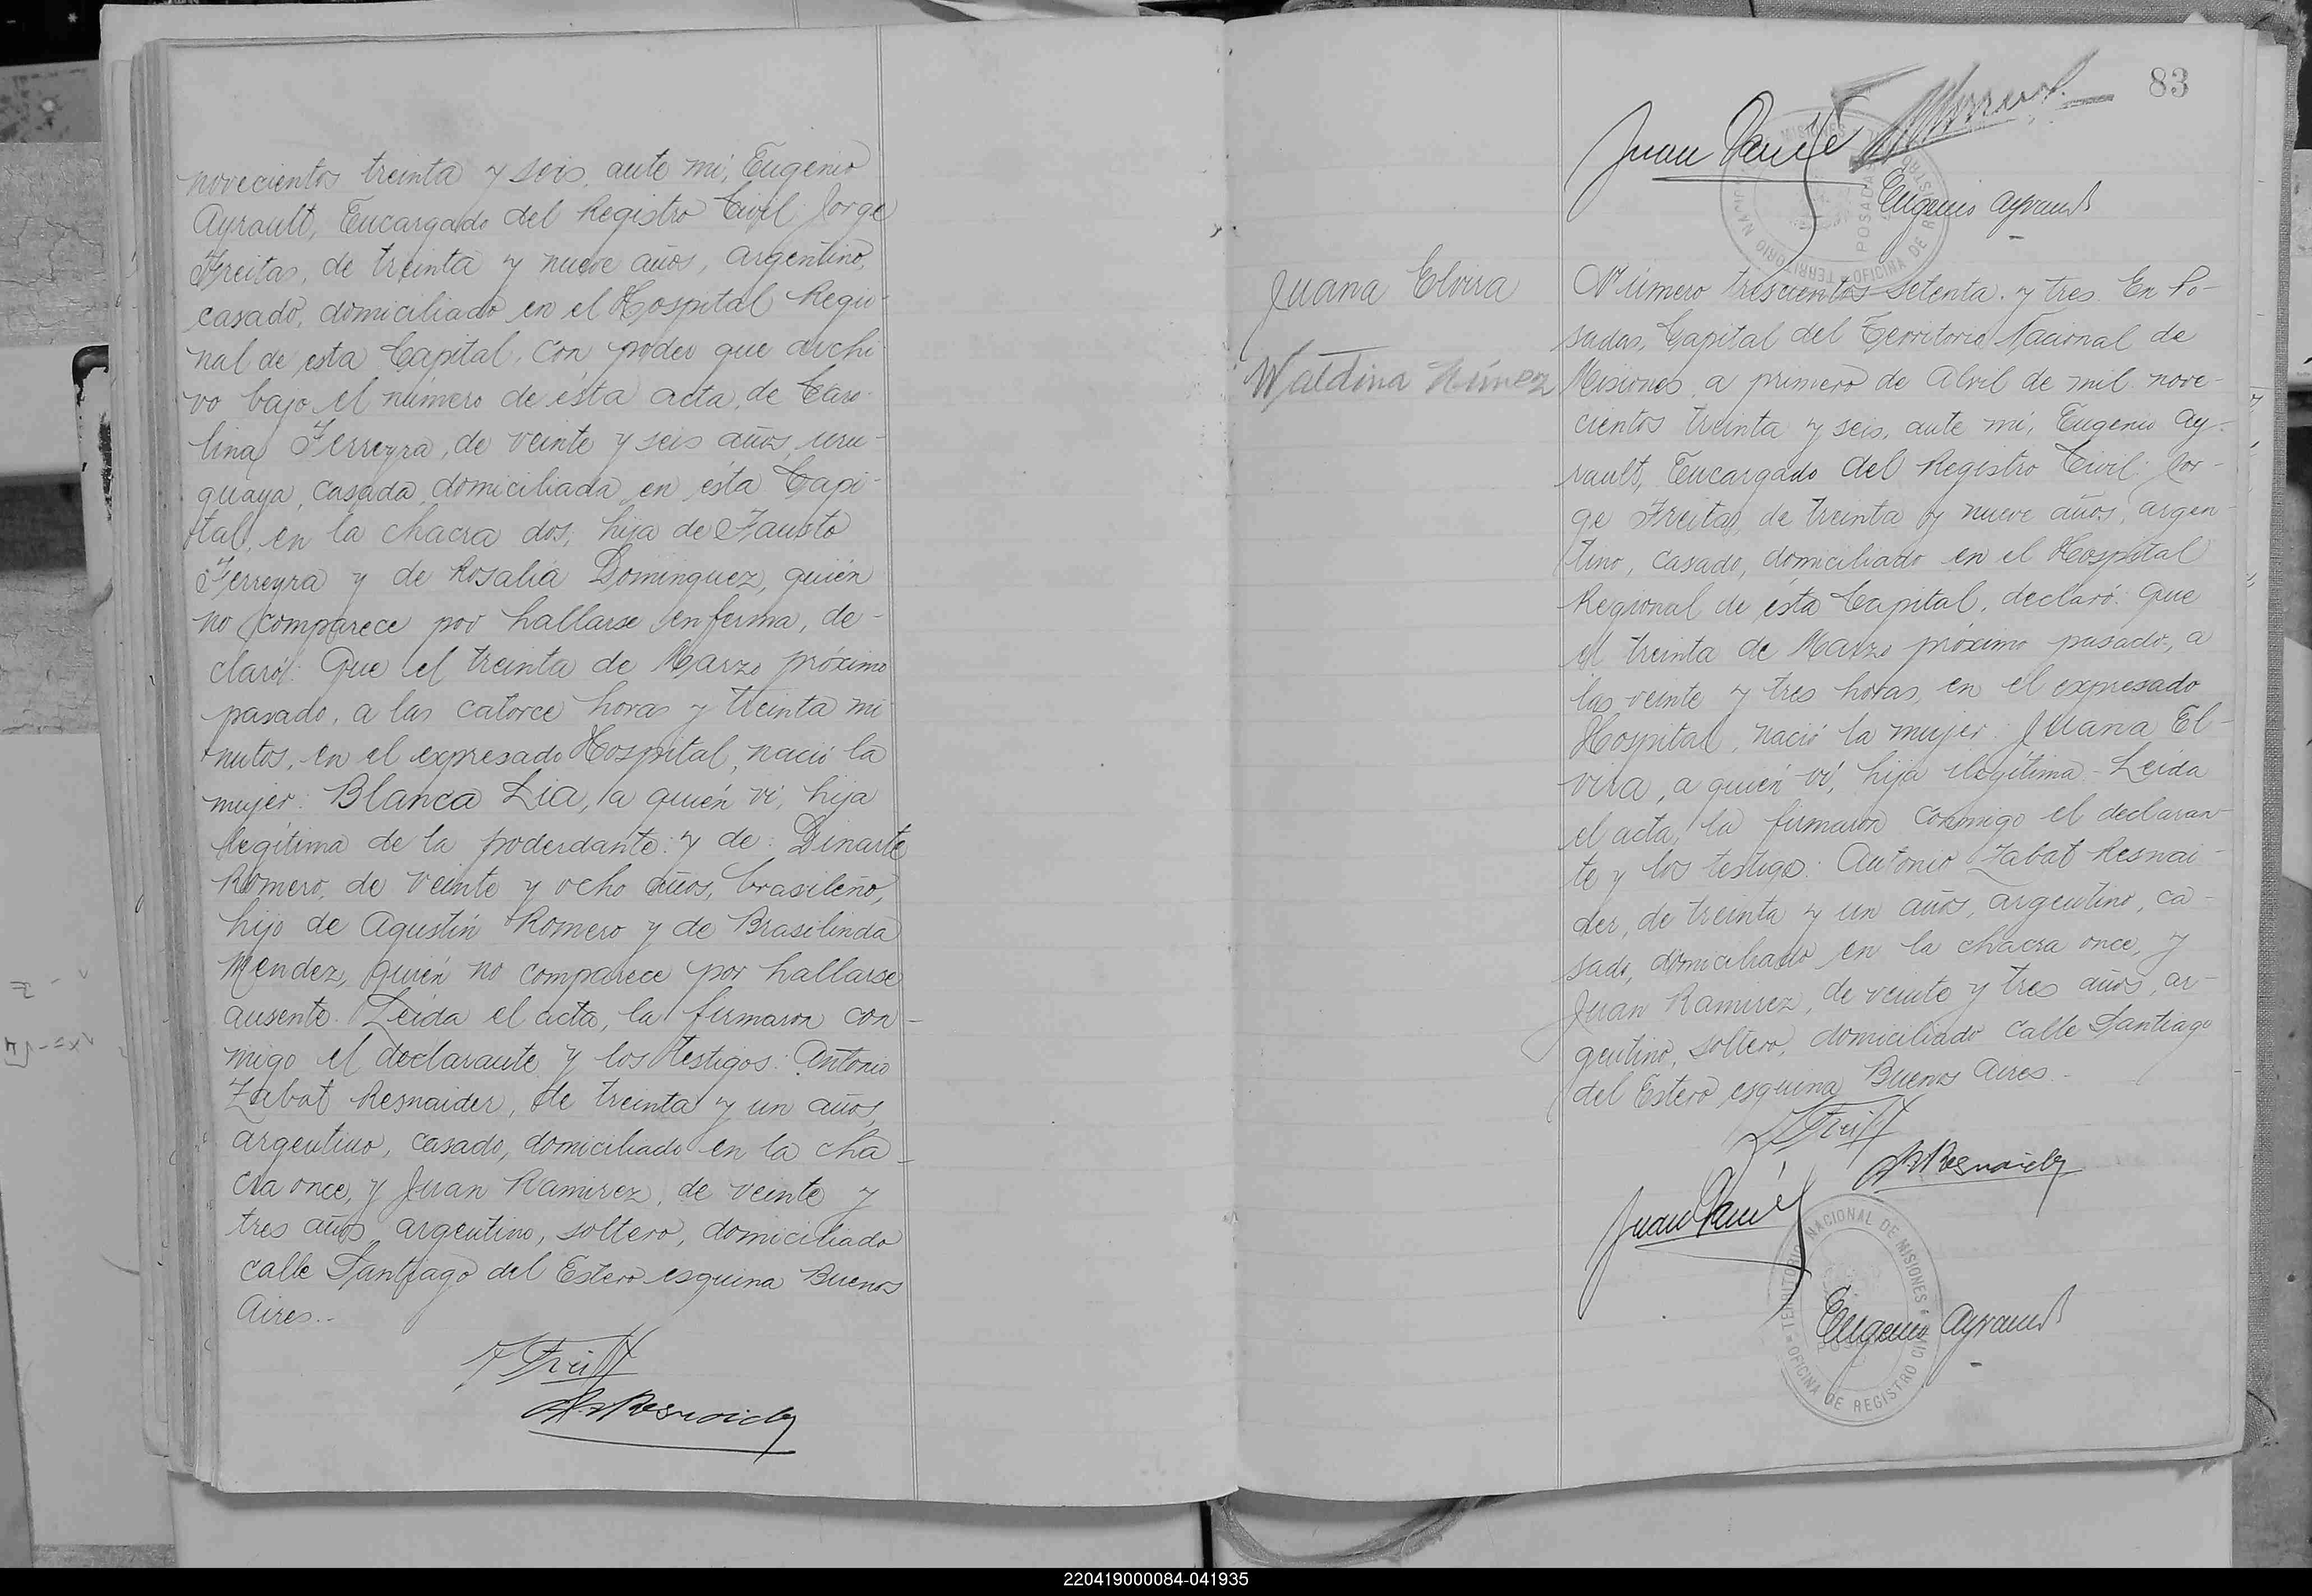 novecientos treinta y seis, ante mi, Eugenio
Ayrault, Encargado del Registro Civil: Jorge
Freitas, de treinta y nueve años, argentino,
casado, domiciliado en el Hospital Regio-
nal de esta Capital, con poder que archi-
vo bajo el número de ésta acta, de Caro-
lina Ferreyra, de veinte y seis años, uru-
guaya, casada, domiciliada en ésta Capi-
tal, en la chacra dos, hija de Fausto
Ferreyra y de Rosalia Dominguez, quién
no comparece por hallarse enferma, de-
claró: Que el treinta de Marzo próximo
pasado, a las catorce horas y treinta mi-
nutos, en el expresado Hospital, nació la
mujer: Blanca Lia, a quién ví, hija
legítima de la poderdante y de: Dinarte
Romero, de veinte y ocho años, brasileño,
hijo de Agustín Romero y de Brasilinda
Mendez, quién no comparece por hallarse
ausente. Leída el acta, la firmaron con-
migo el declarante y los testigos: Antonio
Zabat Resnaider, de treinta y un años,
argentino, casado, domiciliado en la cha-
cra once, y Juan Ramirez, de veinte y
tres años, argentino, soltero, domiciliado
calle Santiago del Estero esquina Buenos
Aires.-
83
Eugenio Ayrault
Juana Elvira
Waldina Núnez
Número trescientos setenta y tres. En Po-
sadas, Capital del Territorio Nacional de
Misiones, a primero de Abril de mil nove-
cientos treinta y seis, ante mi, Eugenio Ay-
rault, Encargado del Registro Civil: Jor-
ge Freitas, de treinta y nueve años, argen-
tino, casado, domiciliado en el Hospital
Regional de ésta Capital, declaró: Que
el treinta de Marzo próximo pasado, a
las veinte y tres horas, en el expresado
Hospital, nació la mujer: Juana El-
vira, a quién ví, hija ilegítima.- Leída
el acta, la firmaron conmigo el declaran-
te y los testigos: Antonio Zabat Resnai-
der, de treinta y un años, argentino, ca-
sado, domiciliado en la chacra once, y
Juan Ramirez, de veinte y tres años, ar-
gentino, soltero, domiciliado calle Santiago
del Estero esquina Buenos Aires.-
Eugenio Ayrault
TERRITORIO NACIONAL DE MISIONES
OFICINA DE REGISTRO CIVIL
POSADAS
220419000084-041935